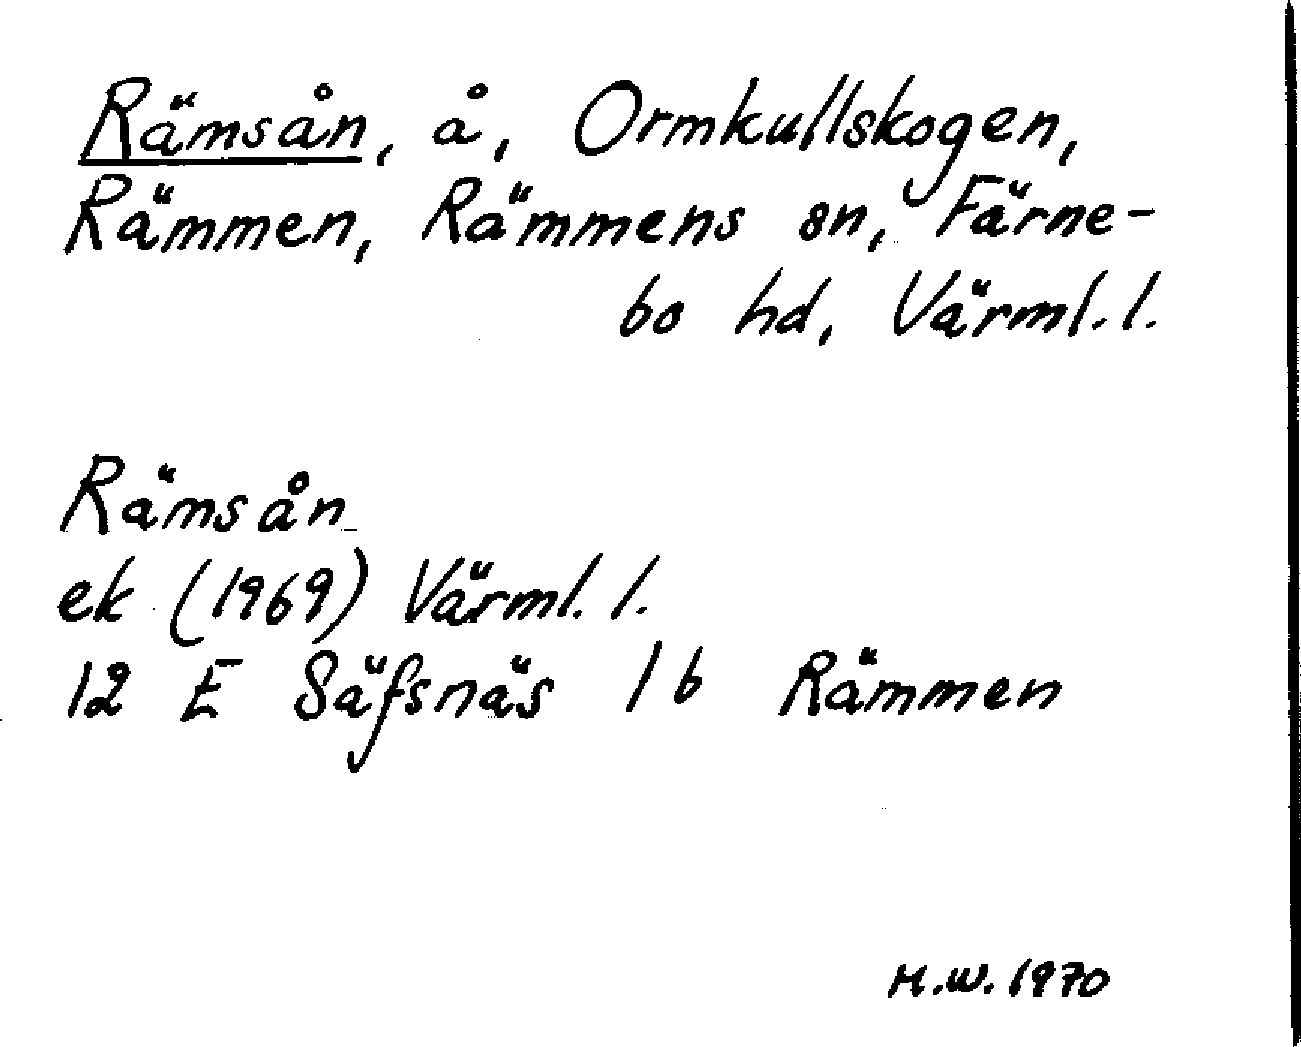 Rämsån, å, Ormkullskogen,
Rämmen, Rämmens sn, Färne-
bo hd, Värml. l.
Rämsån
ek (1969) Värml. l.
12 E Säfsnäs 1 b Rämmen
H.W. 1970